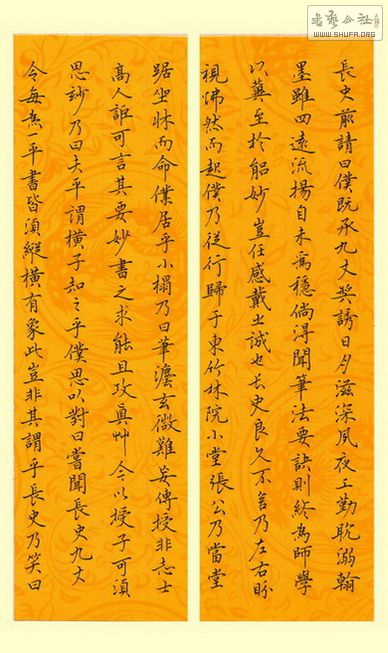 書藝公社
WWW.SHUFA.ORG
長史前請曰僕既承九丈奨誘日月滋深夙夜工勤耽溺翰
墨雖四遠流揚自未為穩倘得聞筆法要訣則終為師學
以冀至於能妙豈任感戴之誠也長史良久不言乃左右盼
視怫然而起僕乃從行歸于東竹林院小堂張公乃當堂
踞坐牀而命僕居乎小榻乃曰筆灋玄微難妄傳授非志士
高人詎可言其要妙書之求能且攻真艸今以授子可須
思妙乃曰夫平謂橫子知之乎僕思以對曰嘗聞長史九丈
令每為一平書皆須縱橫有象此豈非其謂乎長史乃笑曰